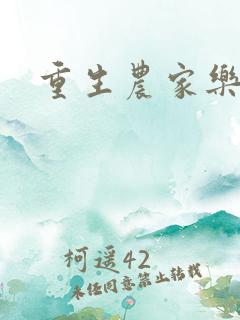 重生農家樂
柯遥42
未经同意禁止转载